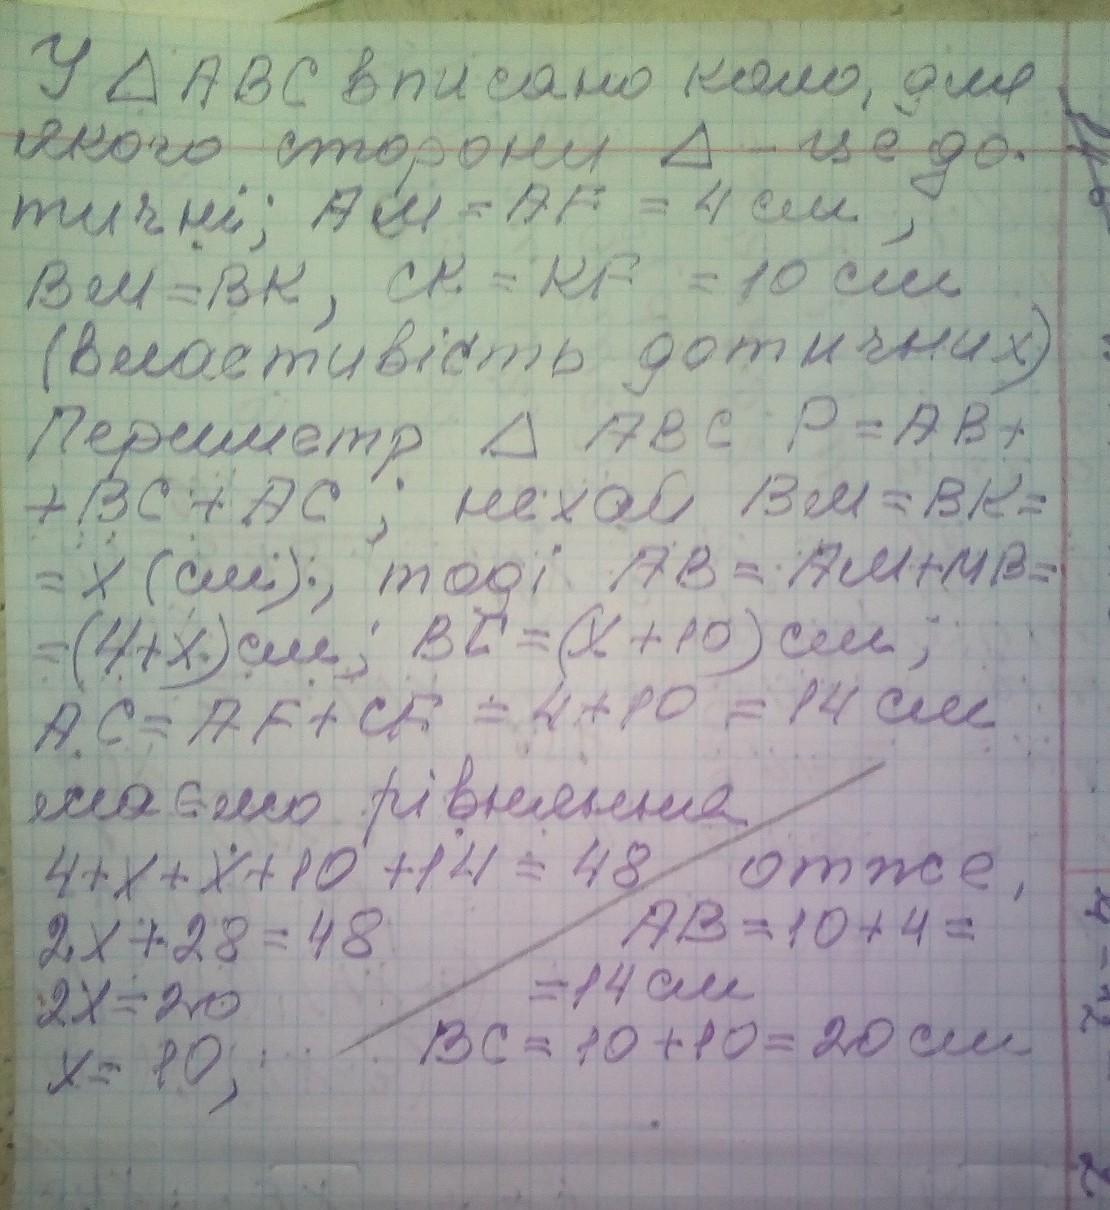 У △ ABC вписано коло, для
якого сторони △ - це до-
тичні; AM = AF = 4 см ;
BM = BK, CK = KF = 10 см
(властивість дотичних)
Периметр △ ABC P = AB +
+ BC + AC ; нехай BM = BK =
= x (см); тоді AB = AM + MB =
= (4+x) см; BC = (x + 10) см ;
AC = AF + CF = 4+10 = 14 см
маємо рівняння
4+x+x+10+14 = 48 отже,
2x+28 = 48 AB = 10 + 4 =
2x = 20 = 14 см
x = 10; BC = 10 + 10 = 20 см